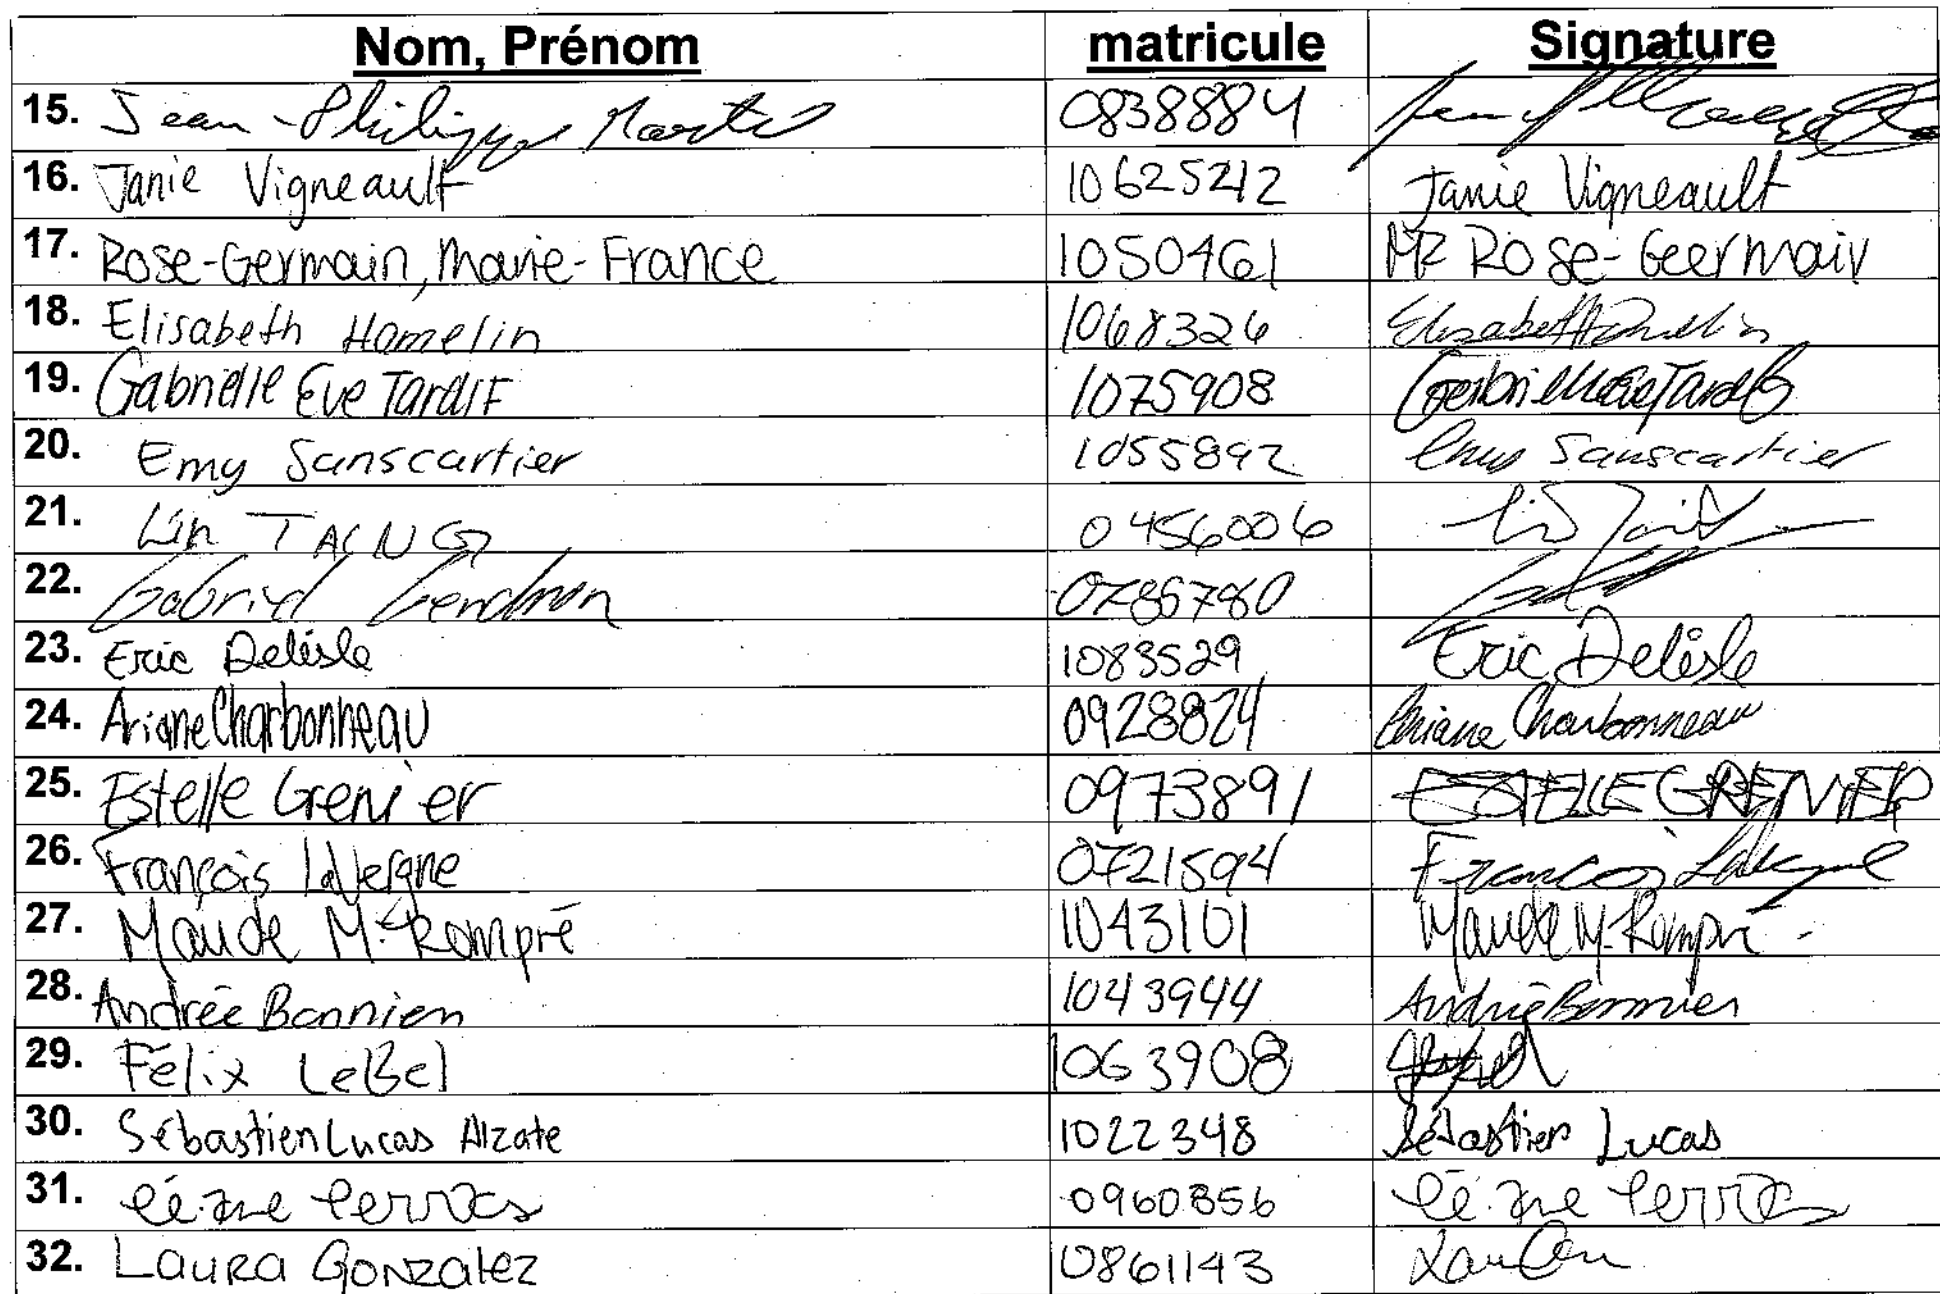 Nom, Prénom matricule Signature
15. Jean-Philippe Martel 0838884
16. Janie Vigneault 10625212 Janie Vigneault
17. Rose-Germain, Marie-France 1050461 MF Rose-Germain
18. Elisabeth Hamelin 1068326 Elisabeth Hamelin
19. Gabrielle Eve Tardif 1075908 Gabrielle Eve Tardif
20. Emy Sanscartier 1055892 Emy Sanscartier
21. Lin 0456006
22. Gabriel Gendron 0785780
23. Eric Delisle 1083529 Eric Delisle
24. Ariane Charbonneau 0928824 Ariane Charbonneau
25. Estelle Grenier 0973891 ESTELLE GRENIER
26. François Lavergne 0721594 François Lavergne
27. Maude M.-Rompré 1043101 Maude M.-Rompré
28. Andrée 1043944 Andrée
29. Félix LeBel 1063908
30. Sébastien Lucas Alzate 1022348 Sébastien Lucas
31. 0960856
32. Laura Gonzalez 0861143